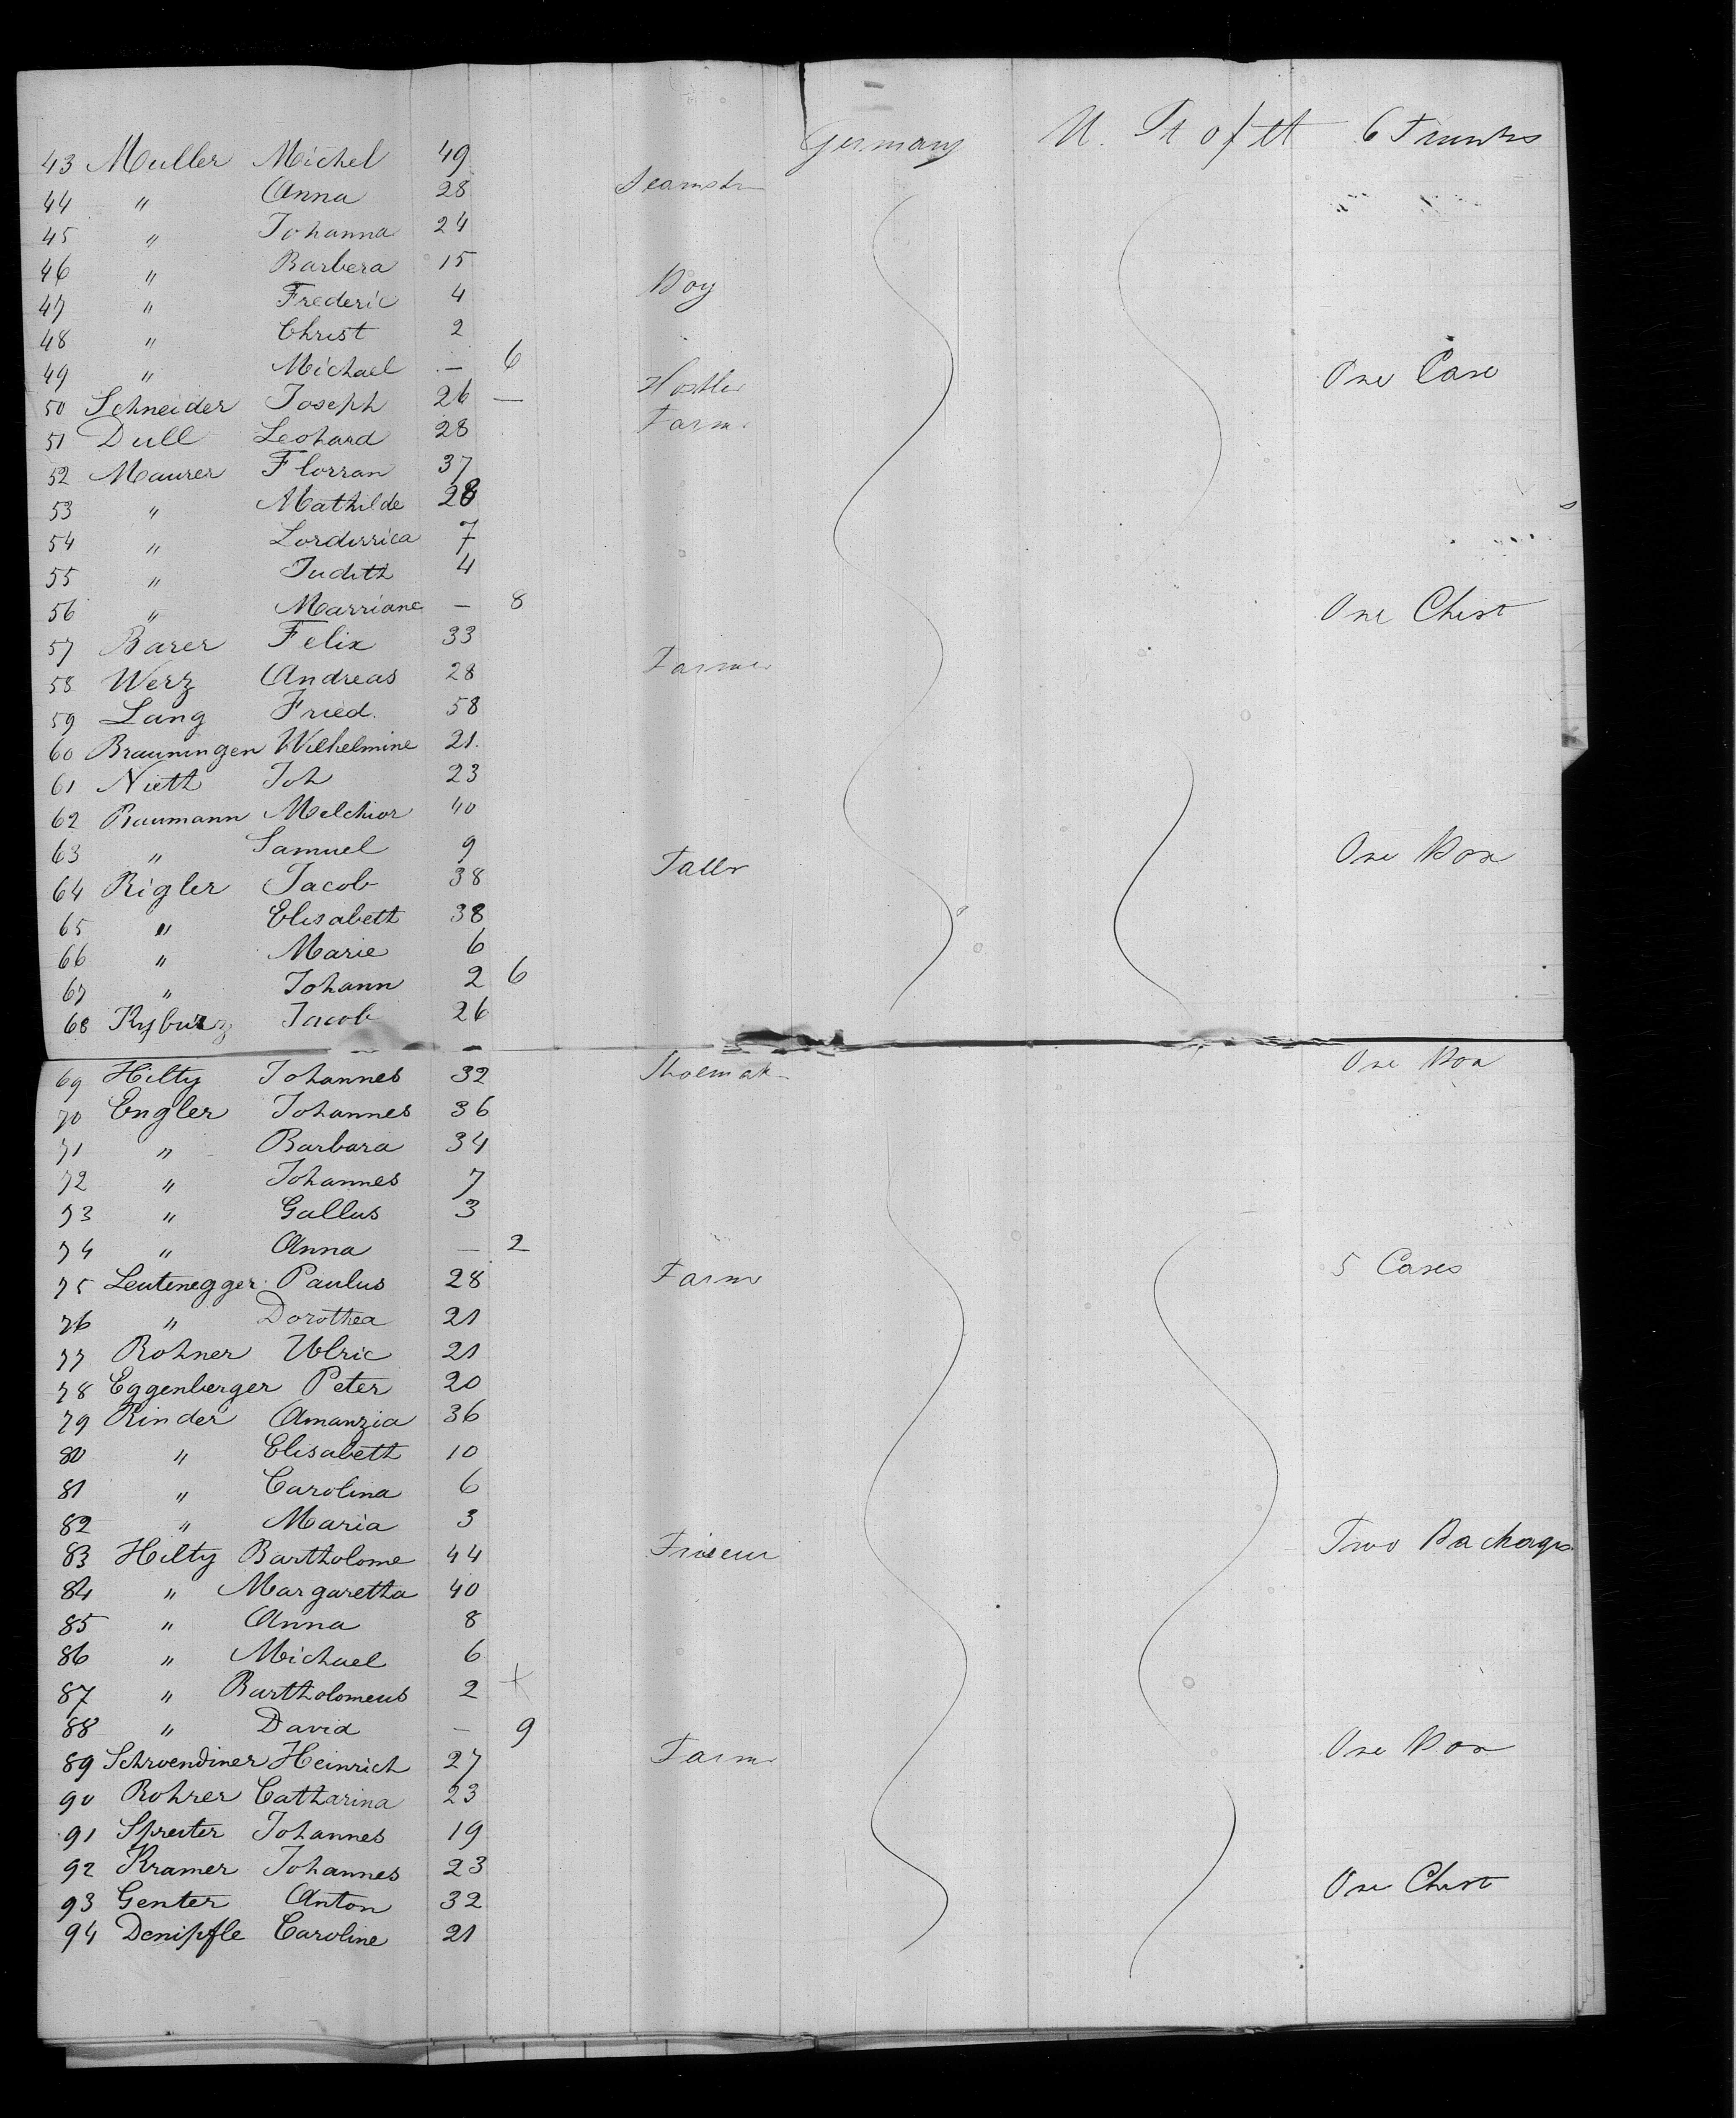 43 Muller Michel 49 Germany U. St of A 6 Trunks
44 " Anna 28 Seamstr
45 " Johanna 24
46 " Barbera 15
47 " Frederic 4 Boy
48 " Christ 2
49 " Michael — 6
50 Schneider Joseph 26 — Hostler One Case
51 Dull Leohard 28 Farm
52 Maurer Florran 37
53 " Mathilde 28
54 " 7
55 " Judith 4
56 " Marriane — 8
57 Barer Felix 33 One Chest
58 Werz Andreas 28 Farmer
59 Lang Fried. 58
60 Brauningen Wilhelmine 21.
61 Nieth Joh 23
62 Baumann Melchior 40
63 " Samuel 9
64 Rigler Jacob 38 One Box
65 " Elisabeth 38
66 " Marie 6
67 " Johann 2 6
68 Kyburz Jacob 26
69 Hilty Johannes 32 Shoemak One Box
70 Engler Johannes 36
71 " Barbara 34
72 " Johannes 7
73 " Gallus 3
74 " Anna — 2
75 Leutenegger Paulus 28 Farmr 5 Cases
76 " Dorothea 21
77 Rohner Ulric 21
78 Eggenberger Peter 20
79 Rinder Amanzia 36
80 " Elisabeth 10
81 " Carolina 6
82 " Maria 3
83 Hilty Bartholome 44 Friseur Two Packages
84 " Margaretha 40
85 " Anna 8
86 " Michael 6
87 " Bartholomeus 2 +
88 " David — 9
89 Schwendiner Heinrich 27 Farmr One Box
90 Rohrer Catharina 23
91 Spreiter Johannes 19
92 Kramer Johannes 23
93 Genter Anton 32 One Chest
94 Denipfle Caroline 21